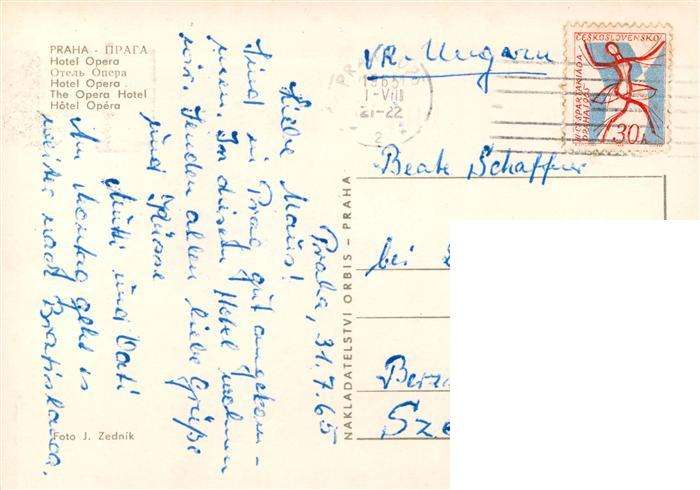 PRAHA - ПРАГА
Hotel Opera
Отель Опера
Hotel Opera
The Opera Hotel
Hôtel Opéra
Praha, 31.7.65
Liebe Mausi!
Sind in Prag gut angekom-
men. In diesem Hotel wohnen
wir. Senden allen liebe Grüße
und Küsse
Mutti und Vati
Am Montag geht es
weiter nach Bratislava.
Foto J. Zedník
NAKLADATELSTVÍ ORBIS - PRAHA
1965
1-VIII
21-22
2
ČESKOSLOVENSKO
SPARTAKIÁDA
PRAHA 1965
30h
VR-Ungarn
Beate Schaffner
bei
Sze